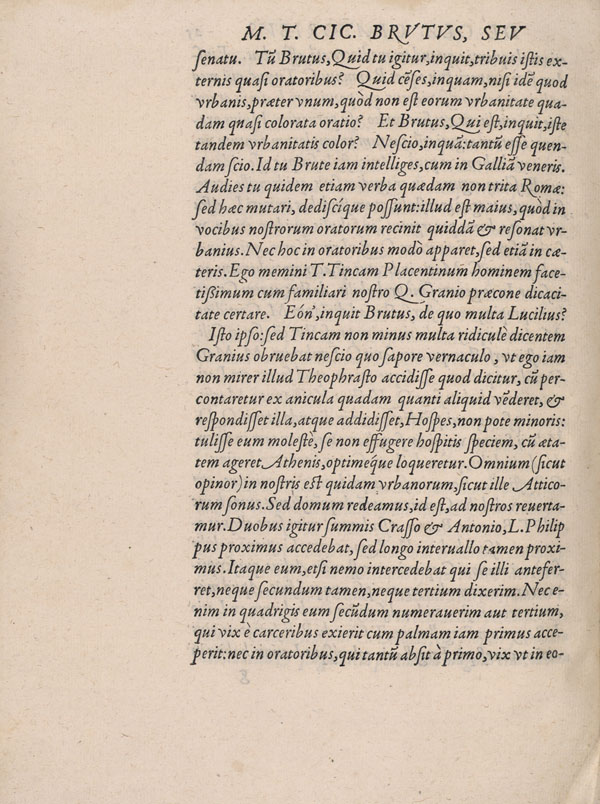 M. T. CIC. BRVTVS, SEV
ſenatu. Tũ Brutus, Quid tu igitur, inquit, tribuis iſtis ex-
ternis quaſi oratoribus? Quid cẽſes, inquam, niſi idẽ quod
vrbanis, præter vnum, quòd non eſt eorum vrbanitate qua-
dam quaſi colorata oratio? Et Brutus, Qui eſt, inquit, iſte
tandem vrbanitatis color? Neſcio, inquã: tantũ eſſe quen-
dam ſcio. Id tu Brute iam intelliges, cum in Galliã veneris.
Audies tu quidem etiam verba quædam non trita Romæ:
ſed hæc mutari, dediſcíque poſſunt: illud eſt maius, quòd in
vocibus noſtrorum oratorum recinit quiddã & reſonat vr-
banius. Nec hoc in oratoribus modò apparet, ſed etiã in cæ-
teris. Ego memini T. Tincam Placentinum hominem face-
tißimum cum familiari noſtro Q. Granio præcone dicaci-
tate certare. Eón', inquit Brutus, de quo multa Lucilius?
Iſto ipſo: ſed Tincam non minus multa ridiculè dicentem
Granius obruebat neſcio quo ſapore vernaculo, vt ego iam
non mirer illud Theophraſto accidiſſe quod dicitur, cũ per-
contaretur ex anicula quadam quanti aliquid vẽderet, &
reſpondiſſet illa, atque addidiſſet, Hoſpes, non pote minoris:
tuliſſe eum moleſtè, ſe non effugere hoſpitis ſpeciem, cũ æta-
tem ageret Athenis, optiméque loqueretur. Omnium (ſicut
opinor) in noſtris eſt quidam vrbanorum, ſicut ille Attico-
rum ſonus. Sed domum redeamus, id eſt, ad noſtros reuerta-
mur. Duobus igitur ſummis Craſſo & Antonio, L. Philip
pus proximus accedebat, ſed longo interuallo tamen proxi-
mus. Itaque eum, etſi nemo intercedebat qui ſe illi antefer-
ret, neque ſecundum tamen, neque tertium dixerim. Nec e-
nim in quadrigis eum ſecũdum numerauerim aut tertium,
qui vix è carceribus exierit cum palmam iam primus acce-
perit: nec in oratoribus, qui tantũ abſit à primo, vix vt in eo-